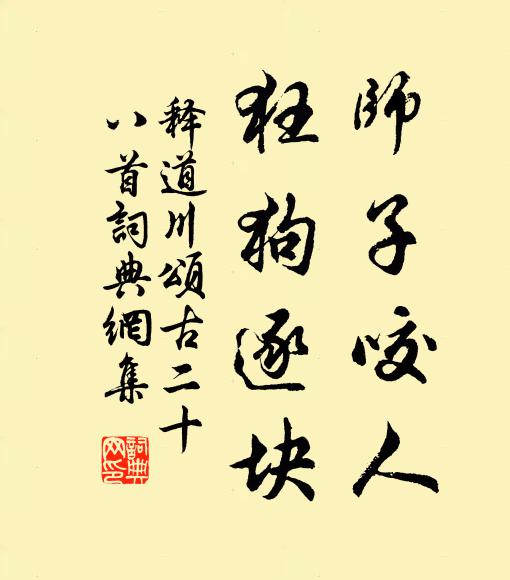 師子咬人
狂狗逐块
释道川頌古二十
八首詞典網集
詞典
网印